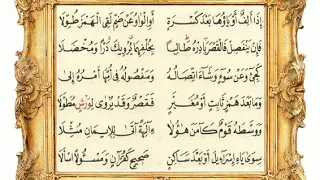 إِذَا أَلِفٌ أَوْ يَاؤُهَا بَعْدَ كَسْرَةٍ أَوِ الْوَاوُ عَنْ ضَمٍّ لَقِي الْهَمْزَ طُوِّلَا
فَإِنْ يَنْفَصِلْ فَالْقَصْرُ بَادِرْهُ طَالِبًا بِخُلْفِهِمَا يُرْوِيكَ دَرًّا وَمُخْضَلَا
كَجِيءَ وَعَنْ سُوءٍ وَشَاءَ اتِّصَالُهُ وَمَفْصُولُهُ فِي أُمِّهَا أَمْرُهُ إِلَى
وَمَا بَعْدَ هَمْزٍ ثَابِتٍ أَوْ مُغَيَّرٍ فَقَصْرٌ وَقَدْ يُرْوَى لِوَرْشٍ مُطَوَّلَا
وَوَسَّطَهُ قَوْمٌ كَآمَنَ هَؤُلَا ءِ آلِهَةً آتَى لِلْإِيمَانِ مُثِّلَا
سِوَى يَاءِ إِسْرَاءِيلَ أَوْ بَعْدَ سَاكِنٍ صَحِيحٍ كَقُرْآنٍ وَمَسْئُولًا اسْأَلَا